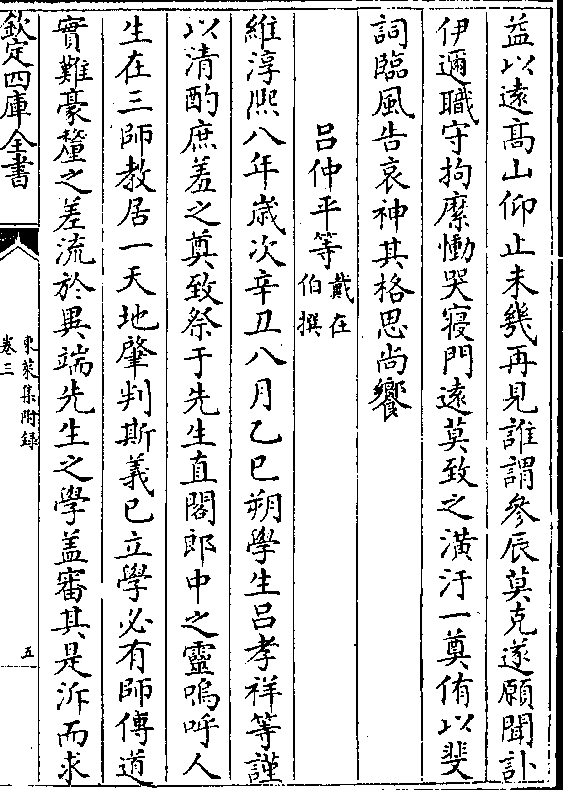 益以遠高山仰止未幾再見誰謂參辰莫克遂願聞訃
伊邇職守拘縻慟哭寢門遠莫致之潢汙一奠侑以斐
詞臨風告哀神其格思尚饗
呂仲平等戴在伯撰
維淳熙八年歲次辛丑八月乙巳朔學生呂孝祥等謹
以清酌庶羞之奠致祭于先生直閣郎中之靈嗚呼人
生在三師教居一天地肇判斯義已立學必有師傳道
實難豪釐之差流於異端先生之學盖審其是泝而求
欽定四庫全書
東萊集附録
卷三
五